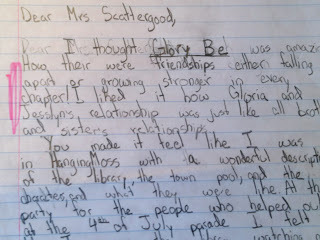 Dear Mrs Scattergood,
I thought Glory Be was amazing
How their we're friendships either falling
apart or growing stronger in every
chapter! I liked it how Gloria and
Jesslyn's relationship was just like all
and sister's relationships.
You made it feel like I was
in Hanging Moss with a wonderful
of the library, the town pool, and the
and what they were like. At the
party for the people who helped
at the 4th of July parade I felt